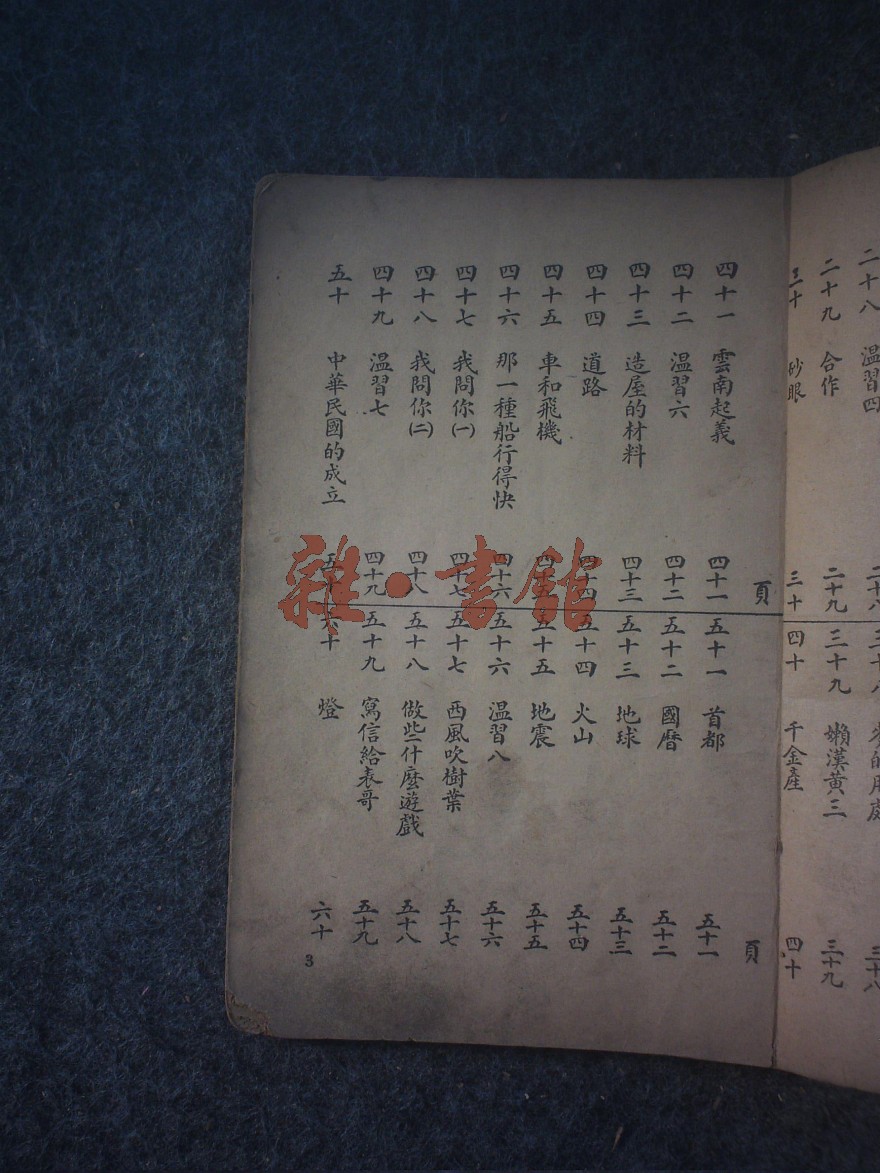 二十八 温習四 二十八
二十九 合作 二十九
三十 砂眼 三十
三十八 的用處 三十八
三十九 懶漢黃三 三十九
四十 千金產 四十
頁
四十一 雲南起義 四十一
四十二 温習六 四十二
四十三 造屋的材料 四十三
四十四 道路 四十四
四十五 車和飛機 四十五
四十六 那一種船行得快 四十六
四十七 我問你(一) 四十七
四十八 我問你(二) 四十八
四十九 温習七 四十九
五十 中華民國的成立 五十
頁
五十一 首都 五十一
五十二 國曆 五十二
五十三 地球 五十三
五十四 火山 五十四
五十五 地震 五十五
五十六 温習八 五十六
五十七 西風吹樹葉 五十七
五十八 做些什麼遊戲 五十八
五十九 寫信給表哥 五十九
六十 燈 六十
3
雜·書館